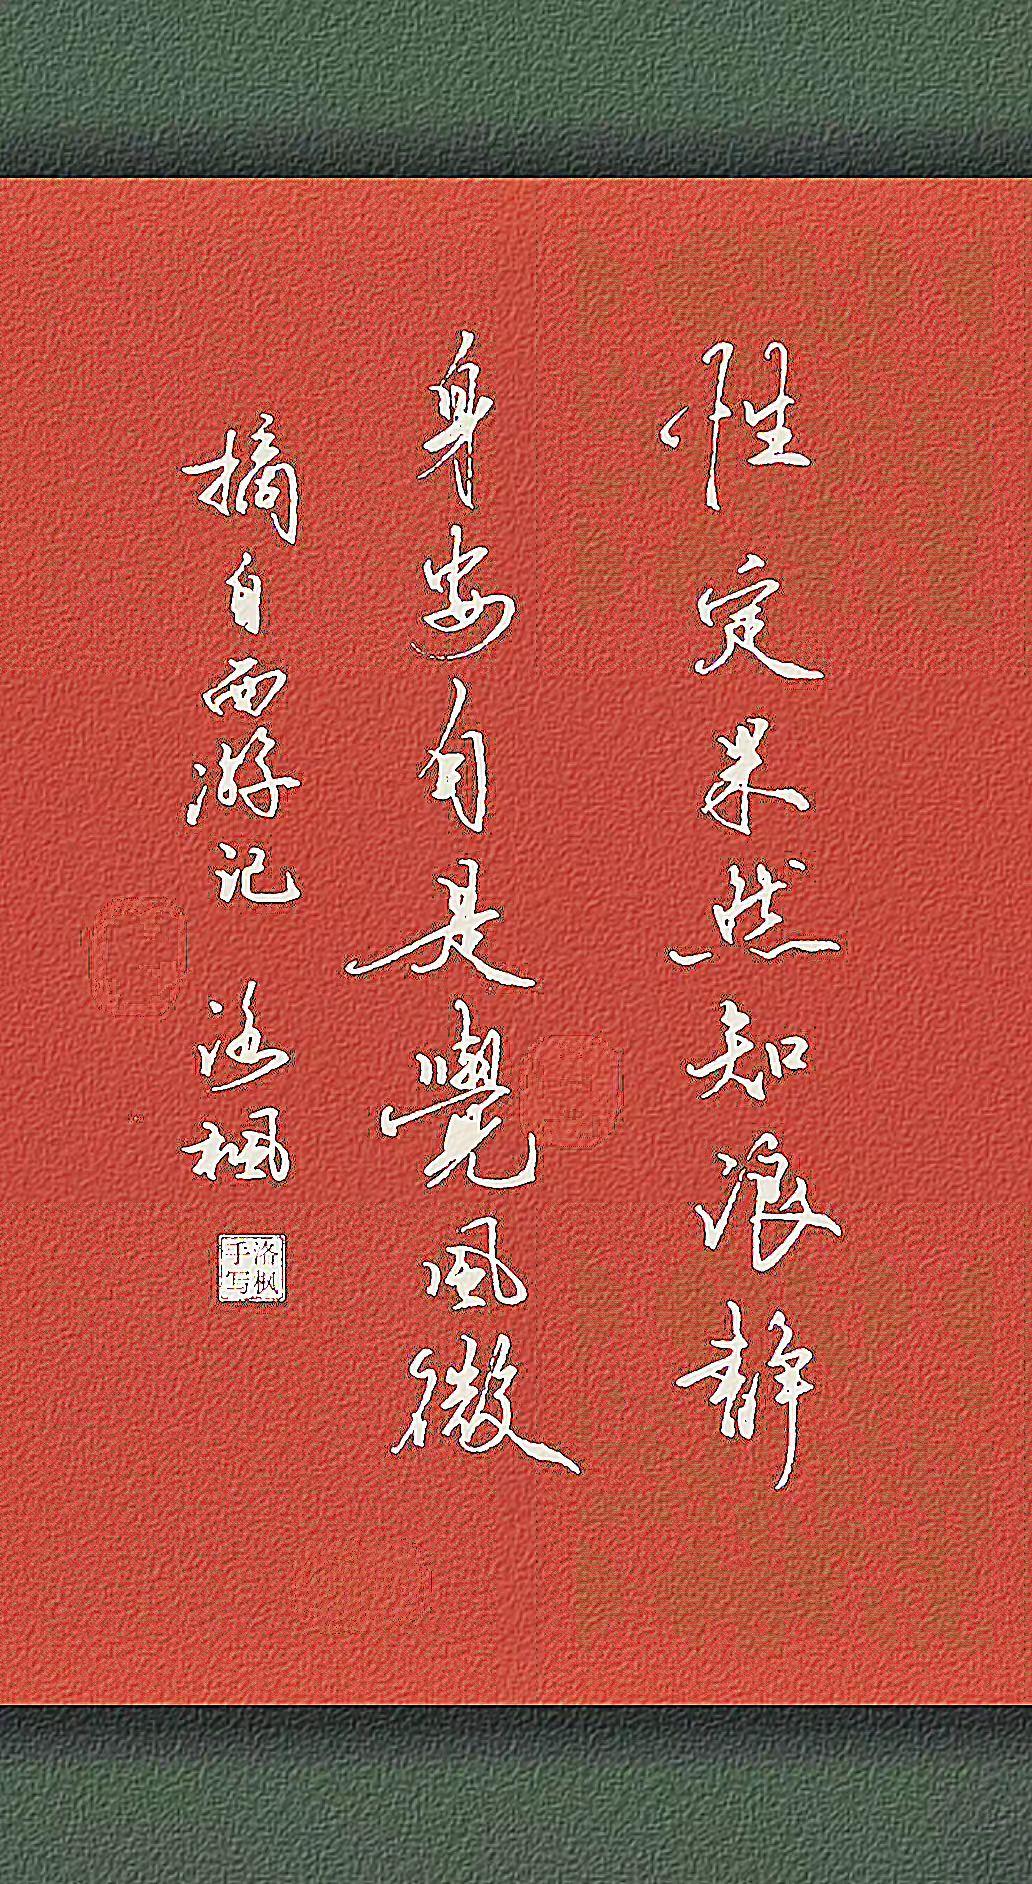 性定果然知浪静
身安自是覺風微
摘自西游记 洛楓
洛枫
手写